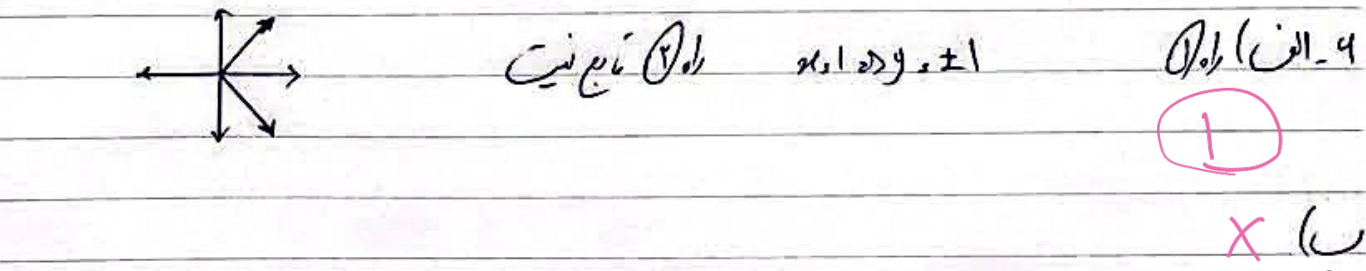 ۹_ الف) راه ① x=1 => y=±1 راه ② تابع نیست
1
ب) X